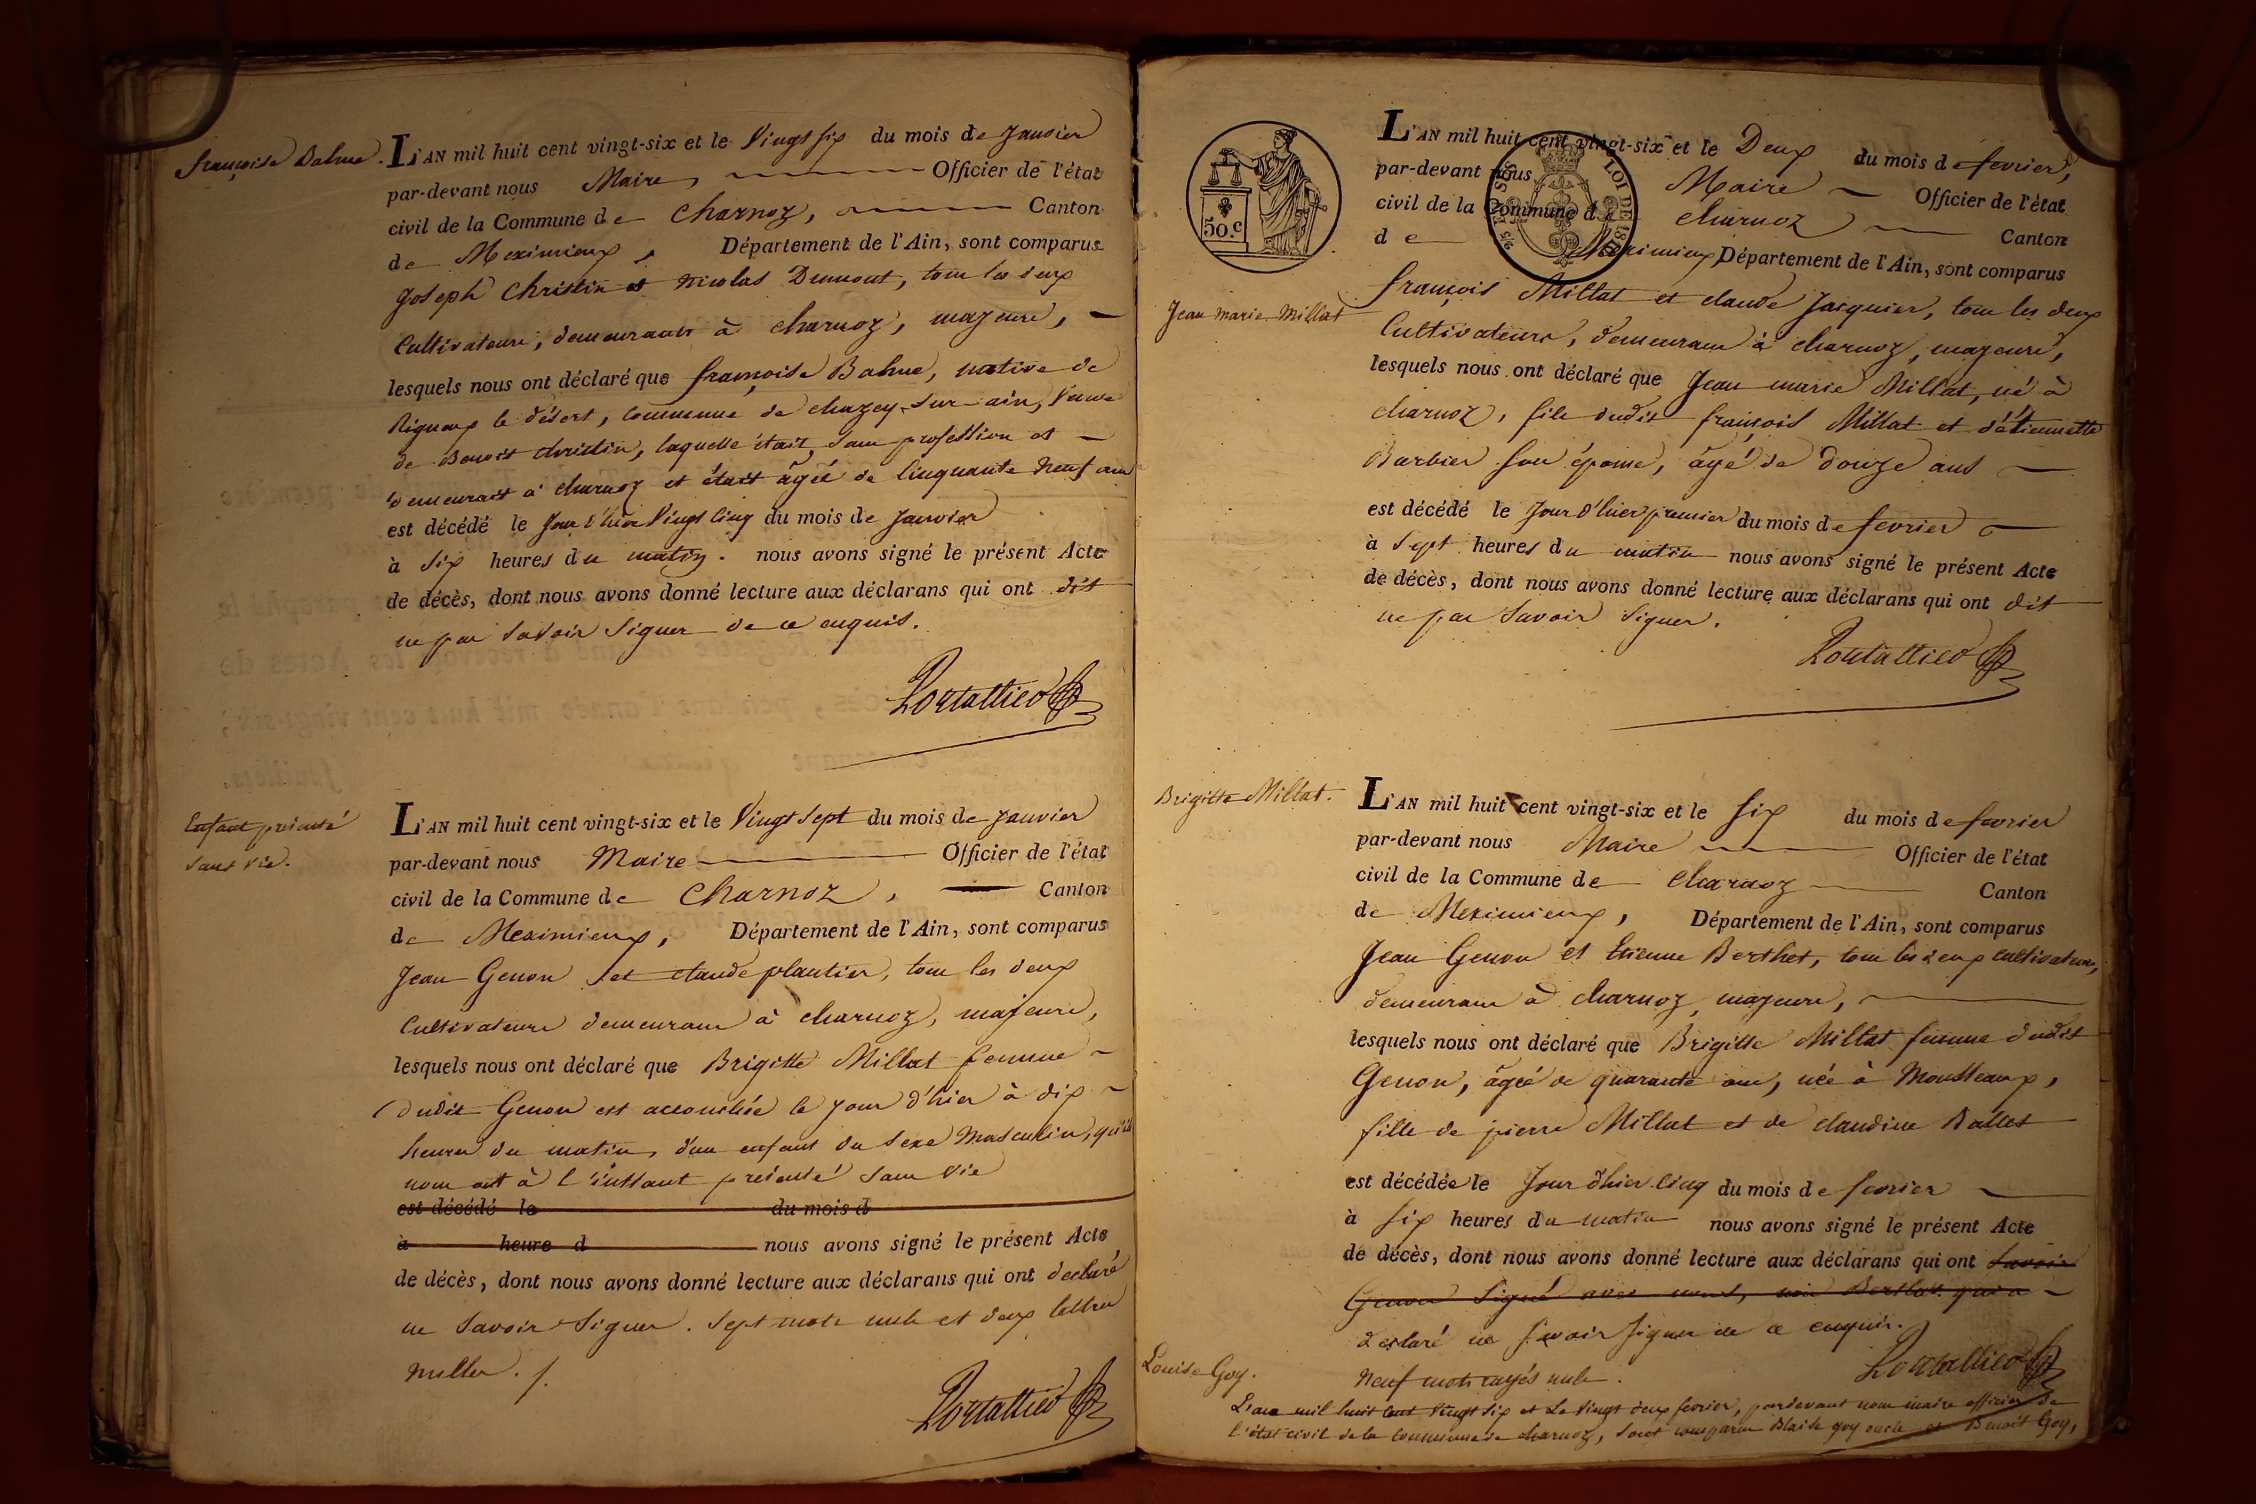 françoise Balme.
L'AN mil huit cent vingt-six et le Vingt six du mois de Janvier
par-devant nous Maire, Officier de l'état
civil de la Commune de Charnoz, Canton
de Meximieux, Département de l'Ain, sont comparus
Joseph Christin et Nicolas Dumont, tous les deux
Cultivateurs, demeurants à charnoz, majeurs,
lesquels nous ont déclaré que françoise Balme, native de
Rigneux le désert, commune de chazey-sur-ain, Veuve
de Benoit christin, laquelle était sans profession et
demeurait à charnoz et était âgée de Cinquante Neuf ans
est décédé le Jour d'hier Vingt Cinq du mois de Janvier
à Six heures du matin. nous avons signé le présent Acte
de décès, dont nous avons donné lecture aux déclarans qui ont dit
ne pas Savoir Signer de ce enquis.
Portattieu
Enfant présenté
sans vie.
L'AN mil huit cent vingt-six et le Vingt Sept du mois de Janvier
par-devant nous Maire Officier de l'état
civil de la Commune de Charnoz, Canton
de Meximieux, Département de l'Ain, sont comparus
Jean Genon et claude plantier, tous les deux
Cultivateurs demeurans à charnoz, majeurs,
lesquels nous ont déclaré que Brigitte Millat femme
dudit Genon est accouchée le jour d'hier à dix
heures du matin, d'un enfant du Sexe Masculin, qu'ils
nous ont à l'instant présenté sans Vie
est décédé le du mois d
à heure d nous avons signé le présent Acte
de décès, dont nous avons donné lecture aux déclarans qui ont déclaré
ne Savoir Signer. Sept mots nuls et deux lettres
nulles.
Portattieu
50.c
LOI DE
L'AN mil huit cent vingt-six et le Deux du mois de fevrier,
par-devant nous Maire Officier de l'état
civil de la Commune de charnoz Canton
de Meximieux Département de l'Ain, sont comparus
Jean Marie Millat
françois Millat et claude Jacquier, tous les deux
Cultivateurs, demeurans à charnoz, majeurs,
lesquels nous ont déclaré que Jean marie Millat, né à
charnoz, fils dudit françois Millat et d'étiennette
Barbier son épouse, âgé de douze ans
est décédé le Jour d'hier premier du mois de fevrier
à Sept heures du matin nous avons signé le présent Acte
de décès, dont nous avons donné lecture aux déclarans qui ont dit
ne pas Savoir Signer.
Portattieu
Brigitte Millat.
L'AN mil huit cent vingt-six et le Six du mois de fevrier
par-devant nous Maire Officier de l'état
civil de la Commune de charnoz Canton
de Meximieux, Département de l'Ain, sont comparus
Jean Genon et Etienne Berthet, tous les deux cultivateurs,
demeurans à charnoz, majeurs,
lesquels nous ont déclaré que Brigitte Millat femme dudit
Genon, âgée de quarante ans, née à Mousseaux,
fille de pierre Millat et de claudine Ballet
est décédée le Jour d'hier Cinq du mois de fevrier
à Six heures du matin nous avons signé le présent Acte
de décès, dont nous avons donné lecture aux déclarans qui ont Savoir
Genon Signé avec nous, non Berthet qui a
déclaré ne Savoir Signer de ce enquis.
Neuf mots rayés nuls.
Portattieu
Louise Goy.
L'an mil huit Cent Vingt Six et Le Vingt deux fevrier, pardevant nous maire officier de
l'état civil de la Commune de charnoz, Sont comparus Blaise goy oncle et Benoît Goy,